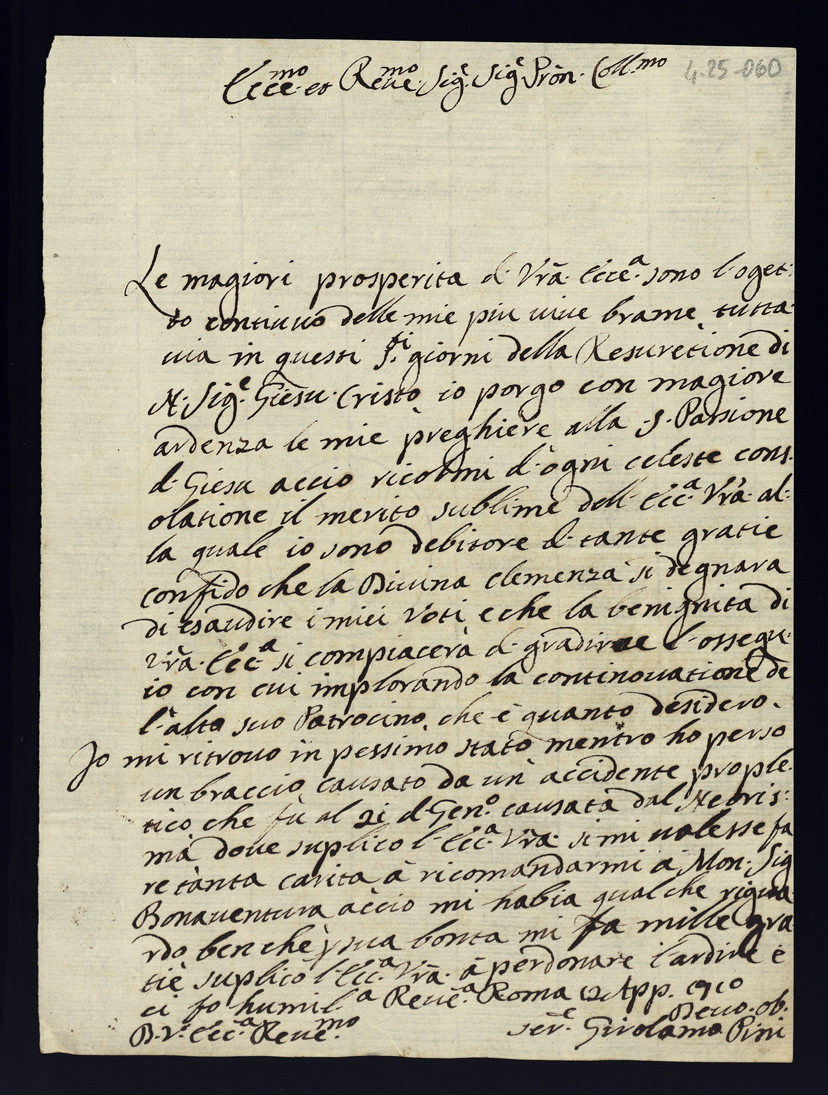 Ecce.mo et Reue.mo Sig.e Sig.e Prōn. Coll.mo 4-25-060
Le magiori prosperita d. Vrā. Ecce.a sono l'oget:
to continuo delle mie piu uiue brame tutta
uia in questi S.ti giorni della Resuretione di
N. Sig.e Giesu Cristo io porgo con magiore
ardenza le mie preghiere alla S. Passione
d. Giesu accio ricolmi d'ogni celeste cons.
olatione il merito sublime dell. Ecc.a Vrā. al.
la quale io sono debitore d. tante gratie
confido che la Diuina clemenza si degnara
di esaudire i miei Voti e che la benignita di
Vrā. Ecc.a si compiacerà d. gradire l'ossequ.
io con cui implorando la continouatione de
l'alto suo Patrocino che è quanto desidero.
Io mi ritrouo in pessimo stato mentro ho perso
un braccio causato da un accidente prople.
tico che fù al 21 d. Gen.o causata dal
ma doue suplico l. Ecc.a Vrā. si mi ualesse fa
re tanta carita à ricomandarmi à Mon. Sig
Bonauentura accio mi habia qual che rigua.
rdo ben che p sua bonta mi fa mille gra
tie suplico l'Ecc.a Vrā. à perdonare l'ardire è
ci fo humil.a Reue.a Roma 12 App. 1710
D. V. Ecc.a Reue.mo Deuo. ob.
ser.e Girolamo Pini